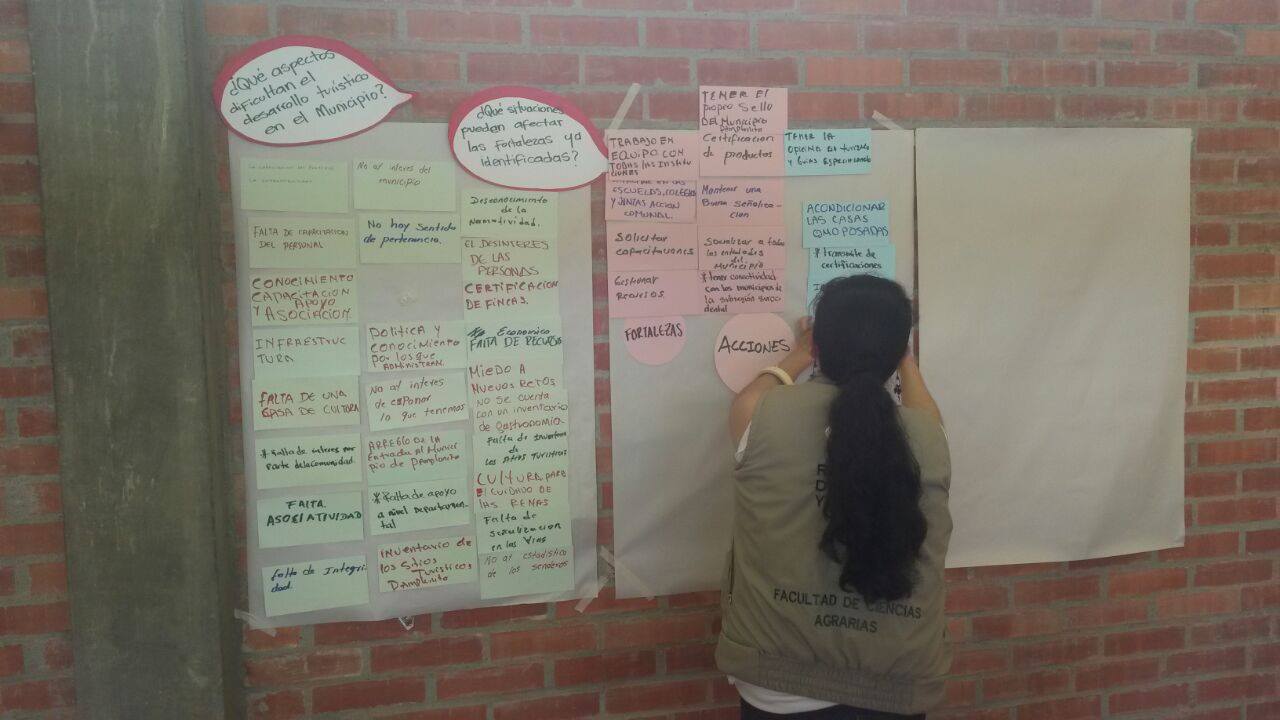 ¿Qué aspectos
dificultan el
desarrollo turístico
en el Municipio?
¿Qué situaciones
pueden afectar
las fortalezas ya
identificadas?
No al interes del
municipio
FALTA DE CAPACITACION
DEL PERSONAL
No hay Sentido
de pertenencia.
CONOCIMIENTO
CAPACITACION APOYO
Y ASOCIACION
INFRAESTRUC
TURA
POLITICA Y
CONOCIMIENTO
por los que
ADMINISTRAN.
FALTA DE UNA
CASA DE CULTURA
No al interes
de esponor
lo que tenemos
* Falta de interes por
parte de la comunidad.
ARREGLO DE LA
Entrada Al Munici
pio de Pamplonita
FALTA
ASOCIATIVIDAD
* Falta de apoyo
a nivel Departamen-
tal
falta de Integri
dad.
Inventario de
los Sitios
Turisticos
Pamplonita
Desconocimiento
de la
Normatividad.
EL DESINTERES
DE LAS
PERSONAS
CERTIFICACION
DE FINCAS.
Economico
FALTA DE RECURSO
MIEDO A
NUEVOS RETOS
NO SE CUENTA
CON UN INVENTARIO
de gastronomia
Falta de
de
Los Sitios Turisticos
CULTURA PARA
EL CUIDADO DE
LAS
Falta de
en las Vias
No al estadistico
de los senderos
TRABAJO EN
EQUIPO CON
TODAS LAS INSTITU
CIONES
TENER EL
propio Sello
DEL Municipio
Pamplonita
Certificacion
de productos
TENER LA
OFICINA DE TURISMO
Y Guias
EN LAS
ESCUELAS, COLEGIOS
Y JUNTAS ACCION
COMUNAL.
Mantener una
Buena Señaliza-
cion
Solicitar
capacitaciones
Socializar a todas
las entidades
del
Municipio
Gestionar
Recursos.
* tener conectividad
con los municipios de
la subregion suroc
dental
ACONDICIONAR
LAS CASAS
COMO POSADAS
* Tramite de
certificaciones
FORTALEZAS
ACCIONES
FACULTAD DE CIENCIAS
AGRARIAS